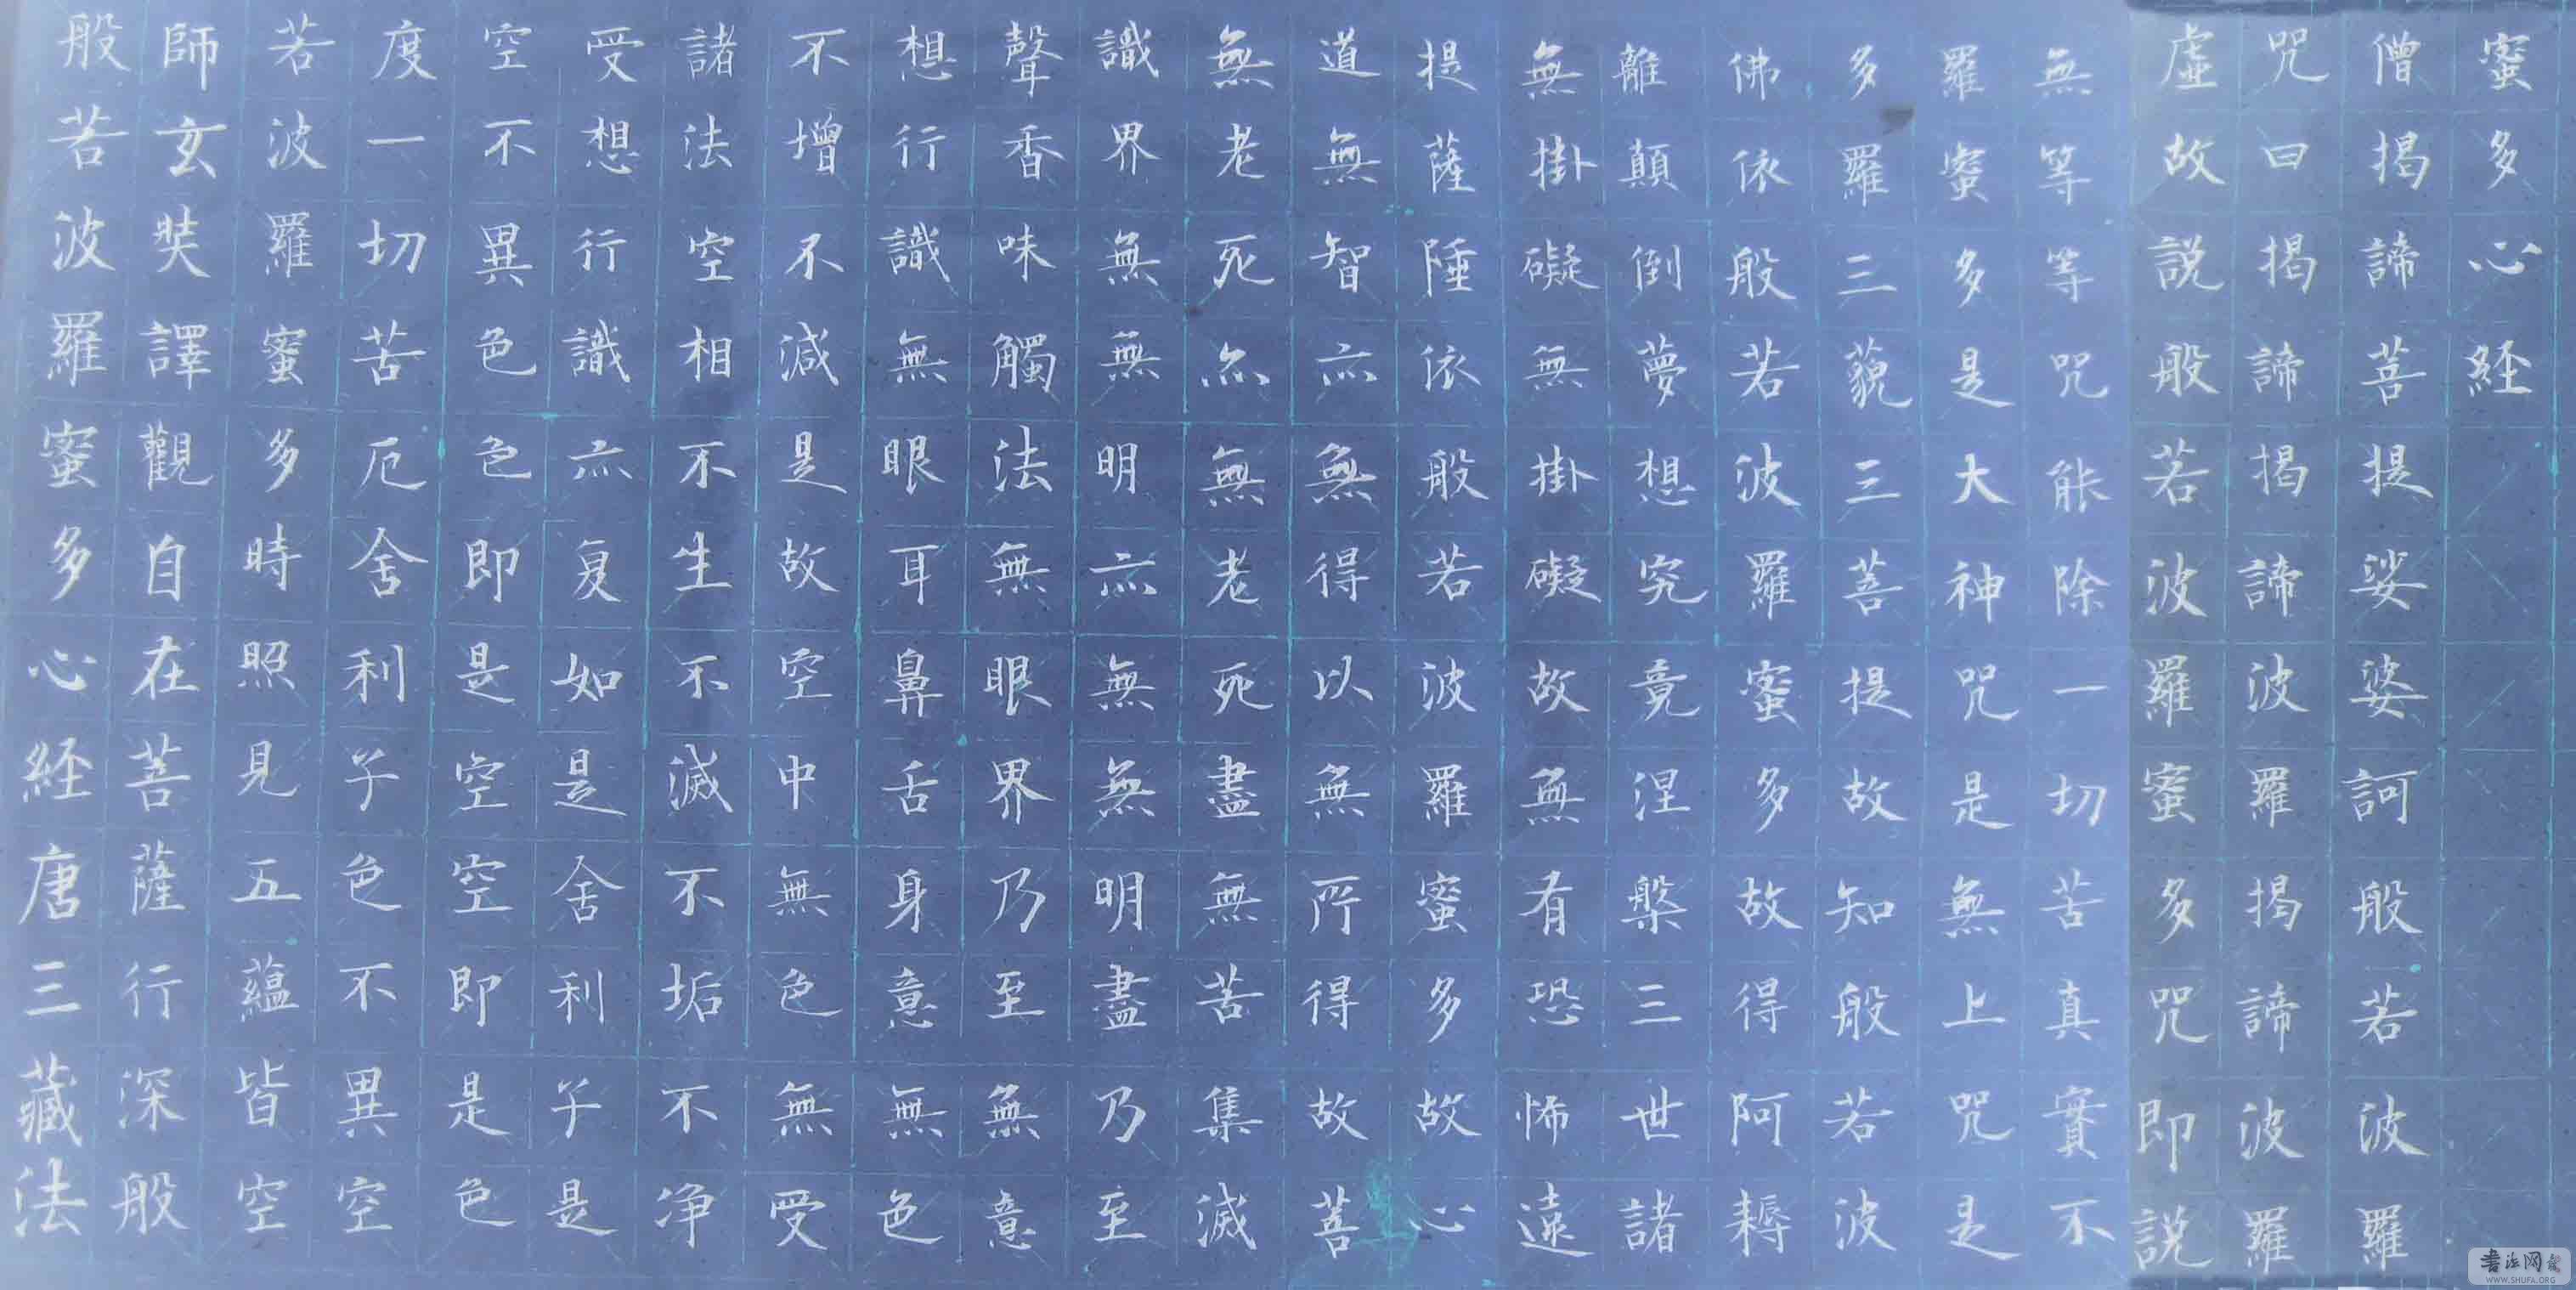 般若波羅蜜多心経唐三藏法
師玄奘譯觀自在菩薩行深般
若波羅蜜多時照見五蘊皆空
度一切苦厄舍利子色不異空
空不異色色即是空空即是色
受想行識亦复如是舍利子是
諸法空相不生不滅不垢不净
不增不減是故空中無色無受
想行識無眼耳鼻舌身意無色
聲香味觸法無眼界乃至無意
識界無無明亦無無明盡乃至
無老死亦無老死盡無苦集滅
道無智亦無得以無所得故菩
提薩陲依般若波羅蜜多故心
無掛礙無掛礙故無有恐怖遠
離顛倒夢想究竟涅槃三世諸
佛依般若波羅蜜多故得阿耨
多羅三藐三菩提故知般若波
羅蜜多是大神咒是無上咒是
無等等咒能除一切苦真實不
虛故説般若波羅蜜多咒即説
咒曰揭諦揭諦波羅揭諦波羅
僧揭諦菩提娑婆訶般若波羅
蜜多心経
書法网
WWW.SHUFA.ORG